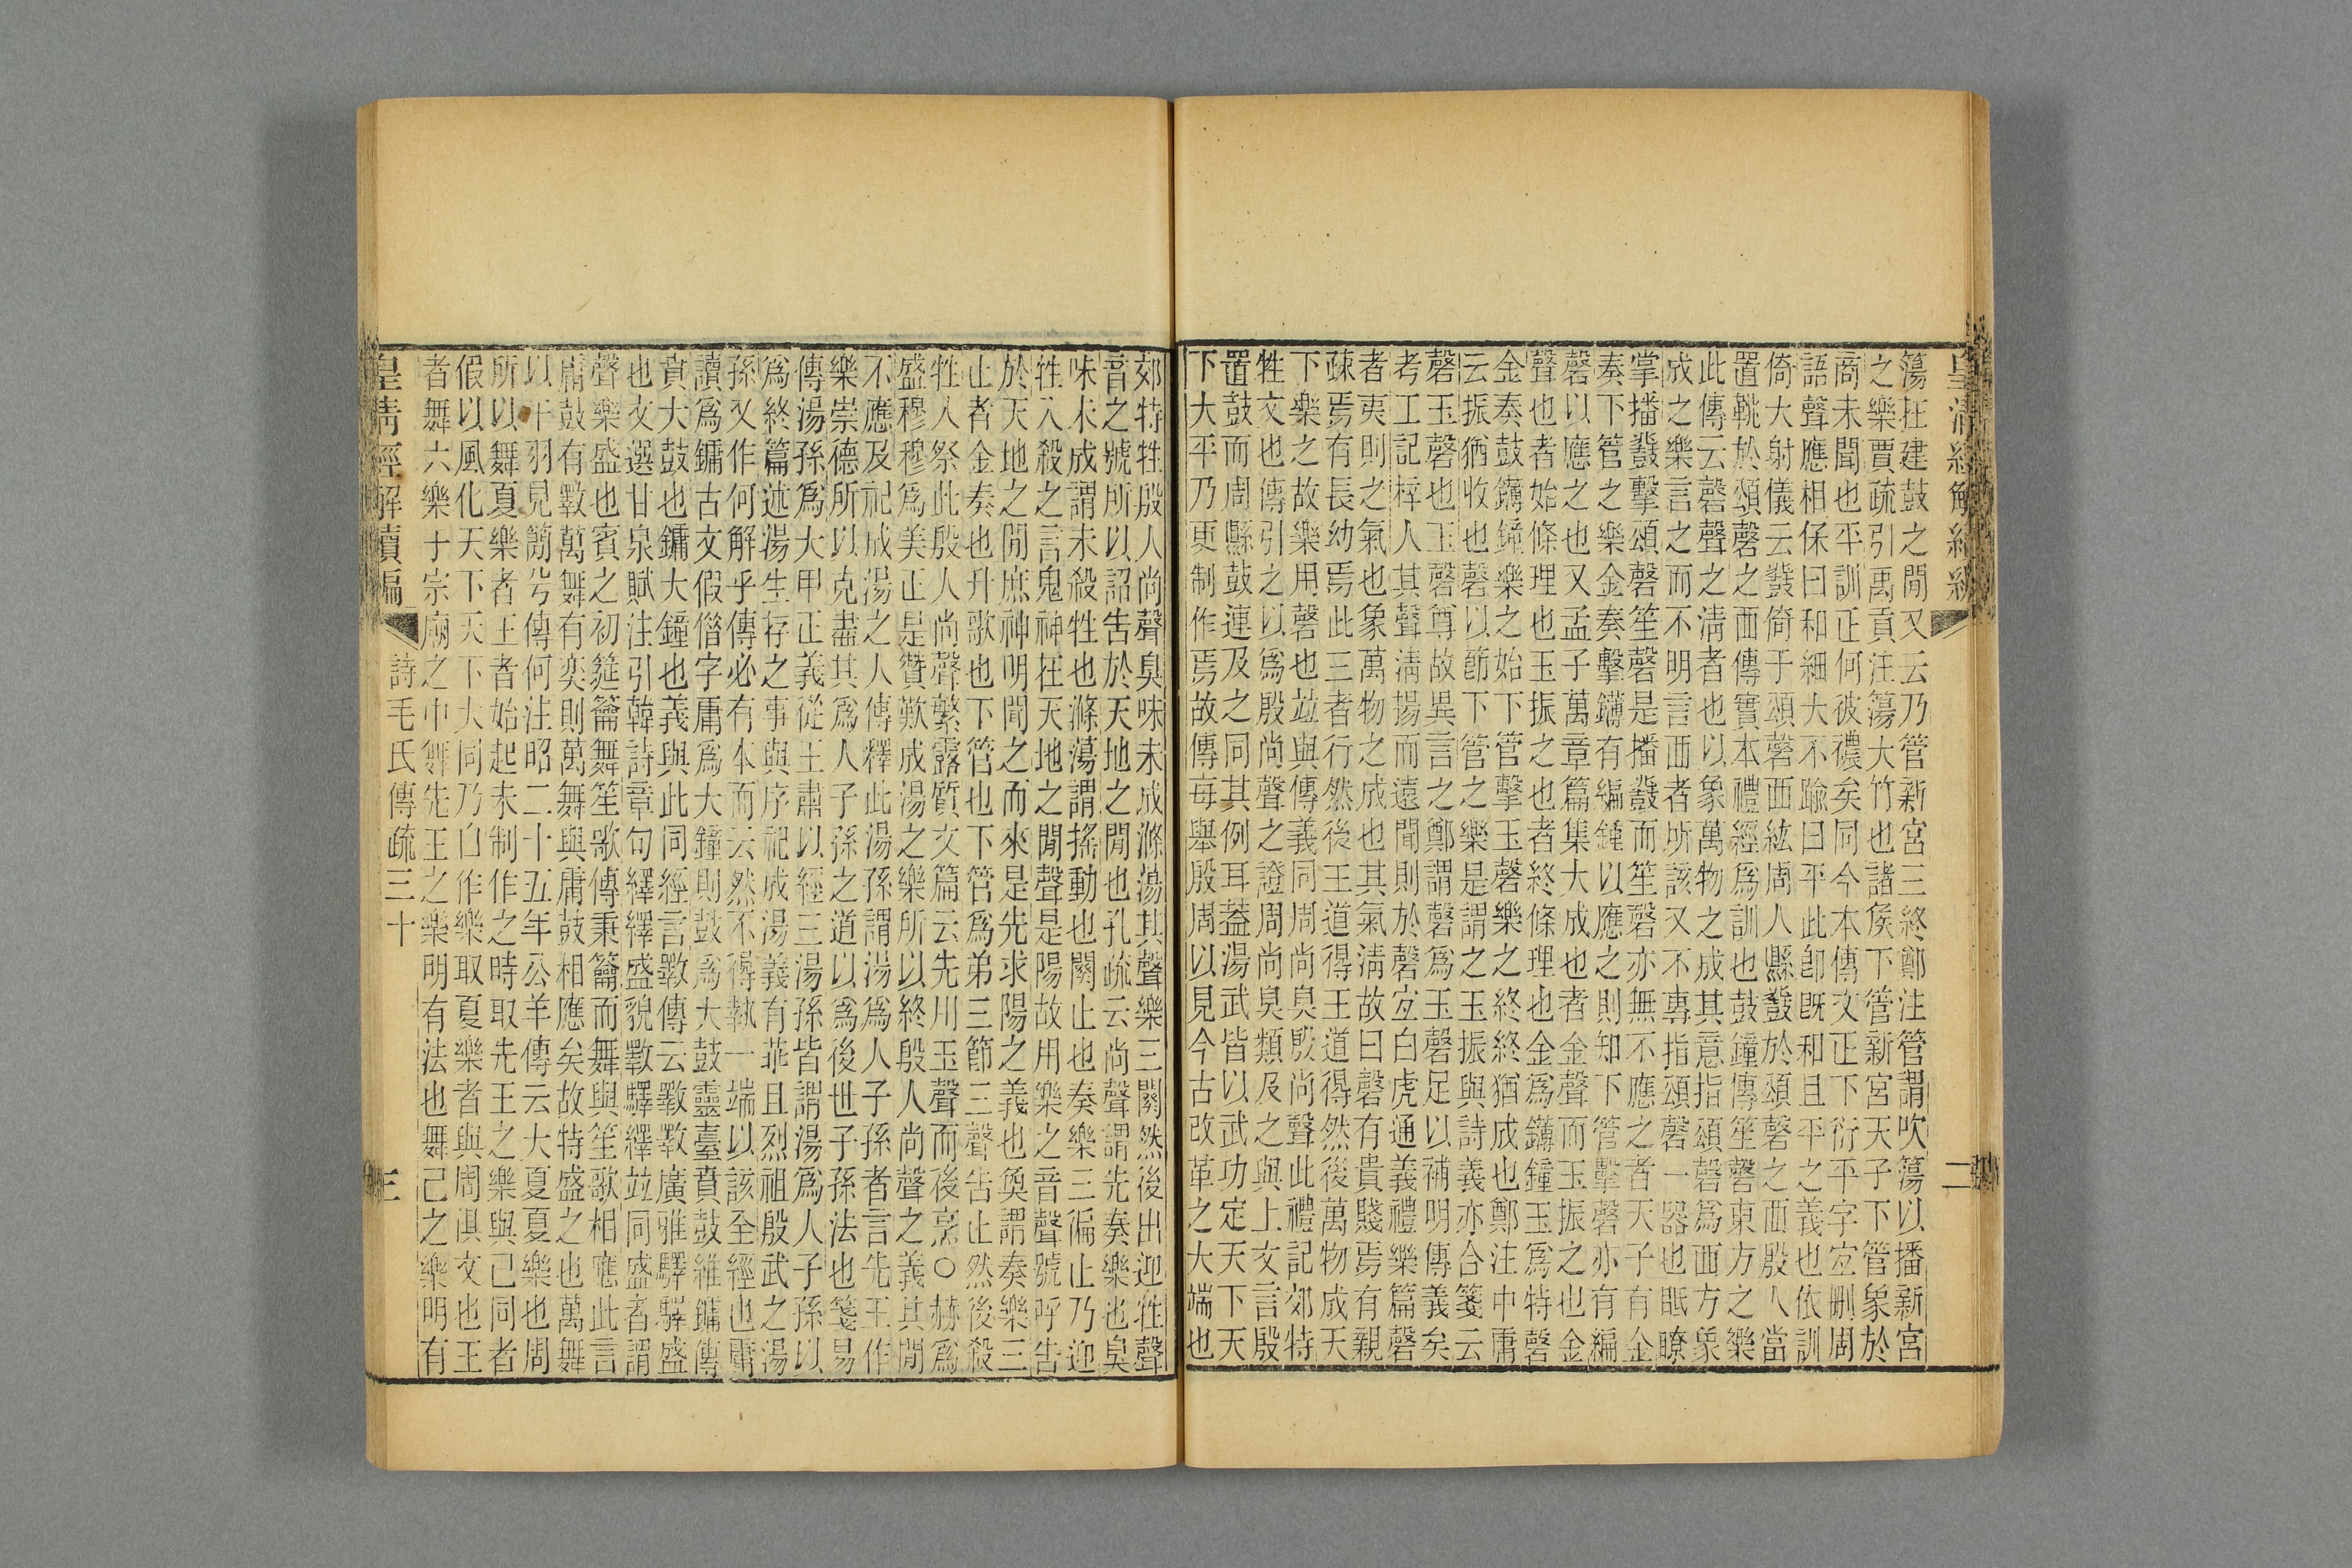 皇清經解續編
二
簜在建鼓之閒又云乃管新宮三終鄭注管謂吹簜以播新宮
之樂賈疏引禹貢注簜大竹也諸侯下管新宮天子下管象於
商未聞也平訓正何彼襛矣同今本傳文正下衍平字宜刪周
語聲應相保曰和細大不踰曰平此卽旣和且平之義也依訓
倚大射儀云鼗倚于頌磬西紘周人縣鼗於頌磬之西殷人當
置鞉於頌磬之西傳實本禮經爲訓也鼓鐘傳笙磬東方之樂
此傳云磬聲之淸者也以象萬物之成其意指頌磬爲西方象
成之樂言之而不明言西者㪽該又不專指頌磬一器也眂瞭
掌播鼗擊頌磬笙磬是播鼗而笙磬亦無不應之者天子有金
奏下管之樂金奏擊鑮有編鍾以應之則知下管擊磬亦有編
磬以應之也又孟子萬章篇集大成也者金聲而玉振之也金
聲也者始條理也玉振之也者終條理也金爲鑮鐘玉爲特磬
金奏鼓鑮鐘樂之始下管擊玉磬樂之終終猶成也鄭注中庸
云振猶收也磬以節下管之樂是謂之玉振與詩義亦合箋云
磬玉磬也玉磬尊故異言之鄭謂磬爲玉磬足以補明傳義矣
考工記梓人其聲淸揚而遠聞則於磬宜白虎通義禮樂篇磬
者夷則之氣也象萬物之成也其氣淸故曰磬有貴賤焉有親
疎焉有長幼焉此三者行然後王道得王道得然後萬物成天
下樂之故樂用磬也竝與傳義同周尚臭殷尚聲此禮記郊特
牲文也傳引之以爲殷尚聲之證周尚臭類及之與上文言殷
置鼓而周縣鼓連及之同其例耳葢湯武皆以武功定天下天
下大平乃更制作焉故傳每舉殷周以見今古改革之大端也
郊特牲殷人尚聲臭味未成滌蕩其聲樂三闋然後出迎牲聲
音之號所以詔告於天地之閒也孔疏云尚聲謂先奏樂也臭
味未成謂未殺牲也滌蕩謂搖動也闋止也奏樂三徧止乃迎
牲入殺之言鬼神在天地之閒聲是陽故用樂之音聲號呼告
於天地之閒庶神明聞之而來是先求陽之義也奐謂奏樂三
止者金奏也升歌也下管也下管爲弟三節三聲告止然後殺
牲人祭此殷人尚聲繁露質文篇云先用玉聲而後烹○赫爲
盛穆穆爲美正是贊歎成湯之樂所以終殷人尚聲之義其閒
不應及祀成湯之人傳釋此湯孫謂湯爲人子孫者言先王作
樂崇德所以克盡其爲人子孫之道以爲後世子孫法也箋易
傳湯孫爲大甲正義從王肅以經三湯孫皆謂湯爲人子孫以
爲終篇述湯生存之事與序祀成湯義有乖且烈祖殷武之湯
孫又作何解乎傳必有本而云然不得執一端以該全經也庸
讀爲鏞古文假借字庸爲大鐘則鼓爲大鼓靈臺賁鼓維鏞傳
賁大鼓也鏞大鐘也義與此同經言斁傳云斁斁廣雅驛驛盛
也文選甘泉賦注引韓詩章句繹繹盛貌斁驛繹竝同盛者謂
聲樂盛也賓之初筵籥舞笙歌傳秉籥而舞與笙歌相應此言
庸鼓有斁萬舞有奕則萬舞與庸鼓相應矣故特盛之也萬舞
以干羽見簡兮傳何注昭二十五年公羊傳云大夏夏樂也周
所以舞夏樂者王者始起未制作之時取先王之樂與己同者
假以風化天下天下大同乃自作樂取夏樂者與周俱文也王
者舞六樂于宗廟之中舞先王之樂明有法也舞己之樂明有
皇清經解續編
詩毛氏傳疏三十
三